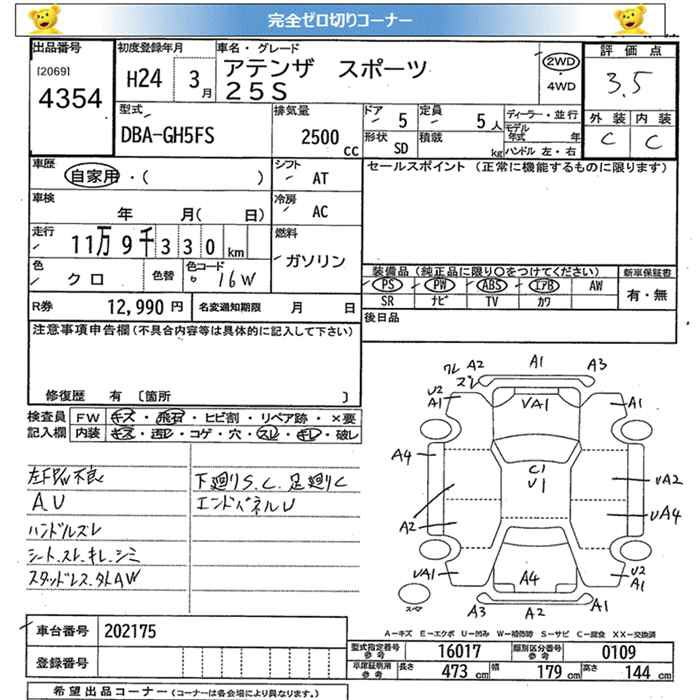 完全ゼロ切りコーナー
出品番号 初度登録年月 車名・グレード 評価点
[2069] H24 3月 アテンザ スポーツ 2WD・4WD 3.5
4354 25S
型式 排気量 ドア 定員 ディーラー・並行 外装 内装
DBA-GH5FS 2500cc 5 5人 モデル年式 年 C C
形状 SD 積載 kg ハンドル 左・右
車歴 シフト セールスポイント (正常に機能するものに限ります)
自家用・( ) AT
車検 冷房
年 月( 日) AC
走行 燃料
11万9千330km ガソリン
色 色替 色コード 装備品 (純正品に限り○をつけてください) 新車保証書
クロ 16W PS PW ABS エアB AW 有・無
R券 12,990円 名変通知期限 月 日 SR ナビ TV カワ
注意事項申告欄(不具合内容等は具体的に記入して下さい) 後日品
修復歴 有 [箇所 ]
検査員 FW キズ・飛石・ヒビ割・リペア跡・×要
記入欄 内装 キズ・汚レ・コゲ・穴・スレ・キレ・破レ
左FPW不良 下廻りS.C.足廻りC
AU エンドパネルU
ハンドルスレ
シート、スレ、キレ、シミ
スタッドレス、外AW
ワレ A2 A1 A3
ズレ
U2
A1 UA1 A1
A4 C1 UA2
U1
A2 UA4
UA1 A4 U2
A1
スペア A3 A2 A1
A-キズ E-エクボ U-凹み W-補修跡 S-サビ C-腐食 XX-交換済
車台番号 202175 型式指定番号 参考 16017 類別区分番号 参考 0109
登録番号 車庫証明用 参考 長さ 473cm 幅 179cm 高さ 144cm
希望出品コーナー (コーナーは各会場により異なります。)